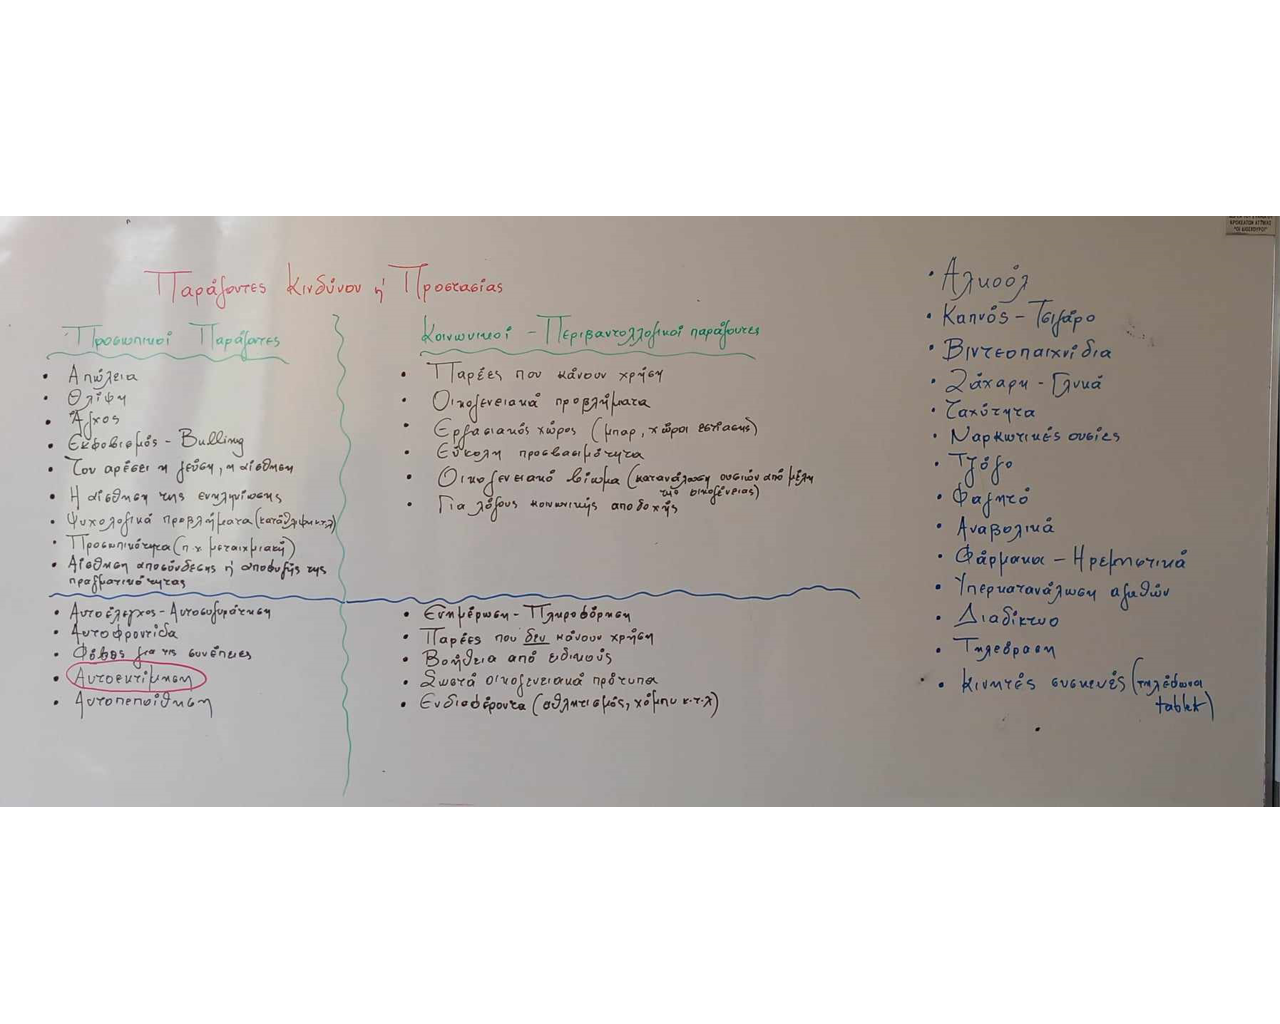 Παράγοντες κινδύνου ή Προστασίας
Προσωπικοί Παράγοντες
• Απώλεια
• Θλίψη
• Άγχος
• Εκφοβισμός - Bulling
• Του αρέσει η γεύση, η αίσθηση
• Η αίσθηση της ενηλικίωσης
• Ψυχολογικά προβλήματα (κατάθλιψη κ.τ.λ)
• Προσωπικότητα (π.χ μεταιχμιακή)
• Αίσθηση αποσύνδεσης ή αποφυγής της
πραγματικότητας
• Αυτοέλεγχος - Αυτοσυγκράτηση
• Αυτοφροντίδα
• Φόβος για τις συνέπειες
• Αυτοεκτίμηση
• Αυτοπεποίθηση
Κοινωνικοί - Περιβαντολλογικοί παράγοντες
• Παρέες που κάνουν χρήση
• Οικογενειακά προβλήματα
• Εργασιακός χώρος (μπαρ, χώροι εστίασης)
• Εύκολη προσβασιμότητα
• Οικογενειακό βίωμα (κατανάλωση ουσιών από μέλη
της οικογένειας)
• Για λόγους κοινωνικής αποδοχής
• Ενημέρωση - Πληροφόρηση
• Παρέες που δεν κάνουν χρήση
• Βοήθεια από ειδικούς
• Σωστά οικογενειακά πρότυπα
• Ενδιαφέροντα (αθλητισμός, χόμπυ κ.τ.λ)
• Αλκοόλ
• Καπνός - Τσιγάρο
• Βιντεοπαιχνίδια
• Ζάχαρη - Γλυκά
• Ταχύτητα
• Ναρκωτικές ουσίες
• Τζόγο
• Φαγητό
• Αναβολικά
• Φάρμακα - Ηρεμιστικά
• Υπερκατανάλωση αγαθών
• Διαδίκτυο
• Τηλεόραση
• Κινητές συσκευές (τηλέφωνα
tablet)